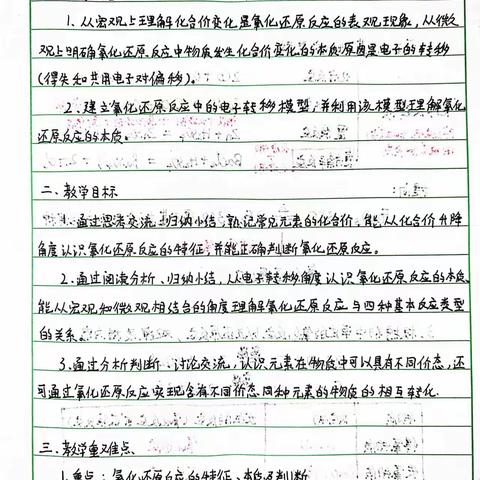 1.从宏观上理解化合价变化是氧化还原反应的表观现象,从微
观上明确氧化还原反应中物质发生化合价变化的本质原因是电子的转移
(得失和共用电子对偏移)。
2.建立氧化还原反应中的电子转移模型,并利用该模型理解氧化
还原反应的本质。
二、教学目标
1.通过思考交流、归纳小结,熟记常见元素的化合价,能从化合价升降
角度认识氧化还原反应的特征,并能正确判断氧化还原反应。
2.通过阅读分析、归纳小结,从电子转移角度认识氧化还原反应的本质,
能从宏观和微观相结合的角度理解氧化还原反应与四种基本反应类型
的关系。
3.通过分析判断、讨论交流,认识元素在物质中可以具有不同价态,还
可通过氧化还原反应实现含有不同价态同种元素的物质的相互转化.
三、教学重难点、
1.重点:氧化还原反应的特征、本质及判断